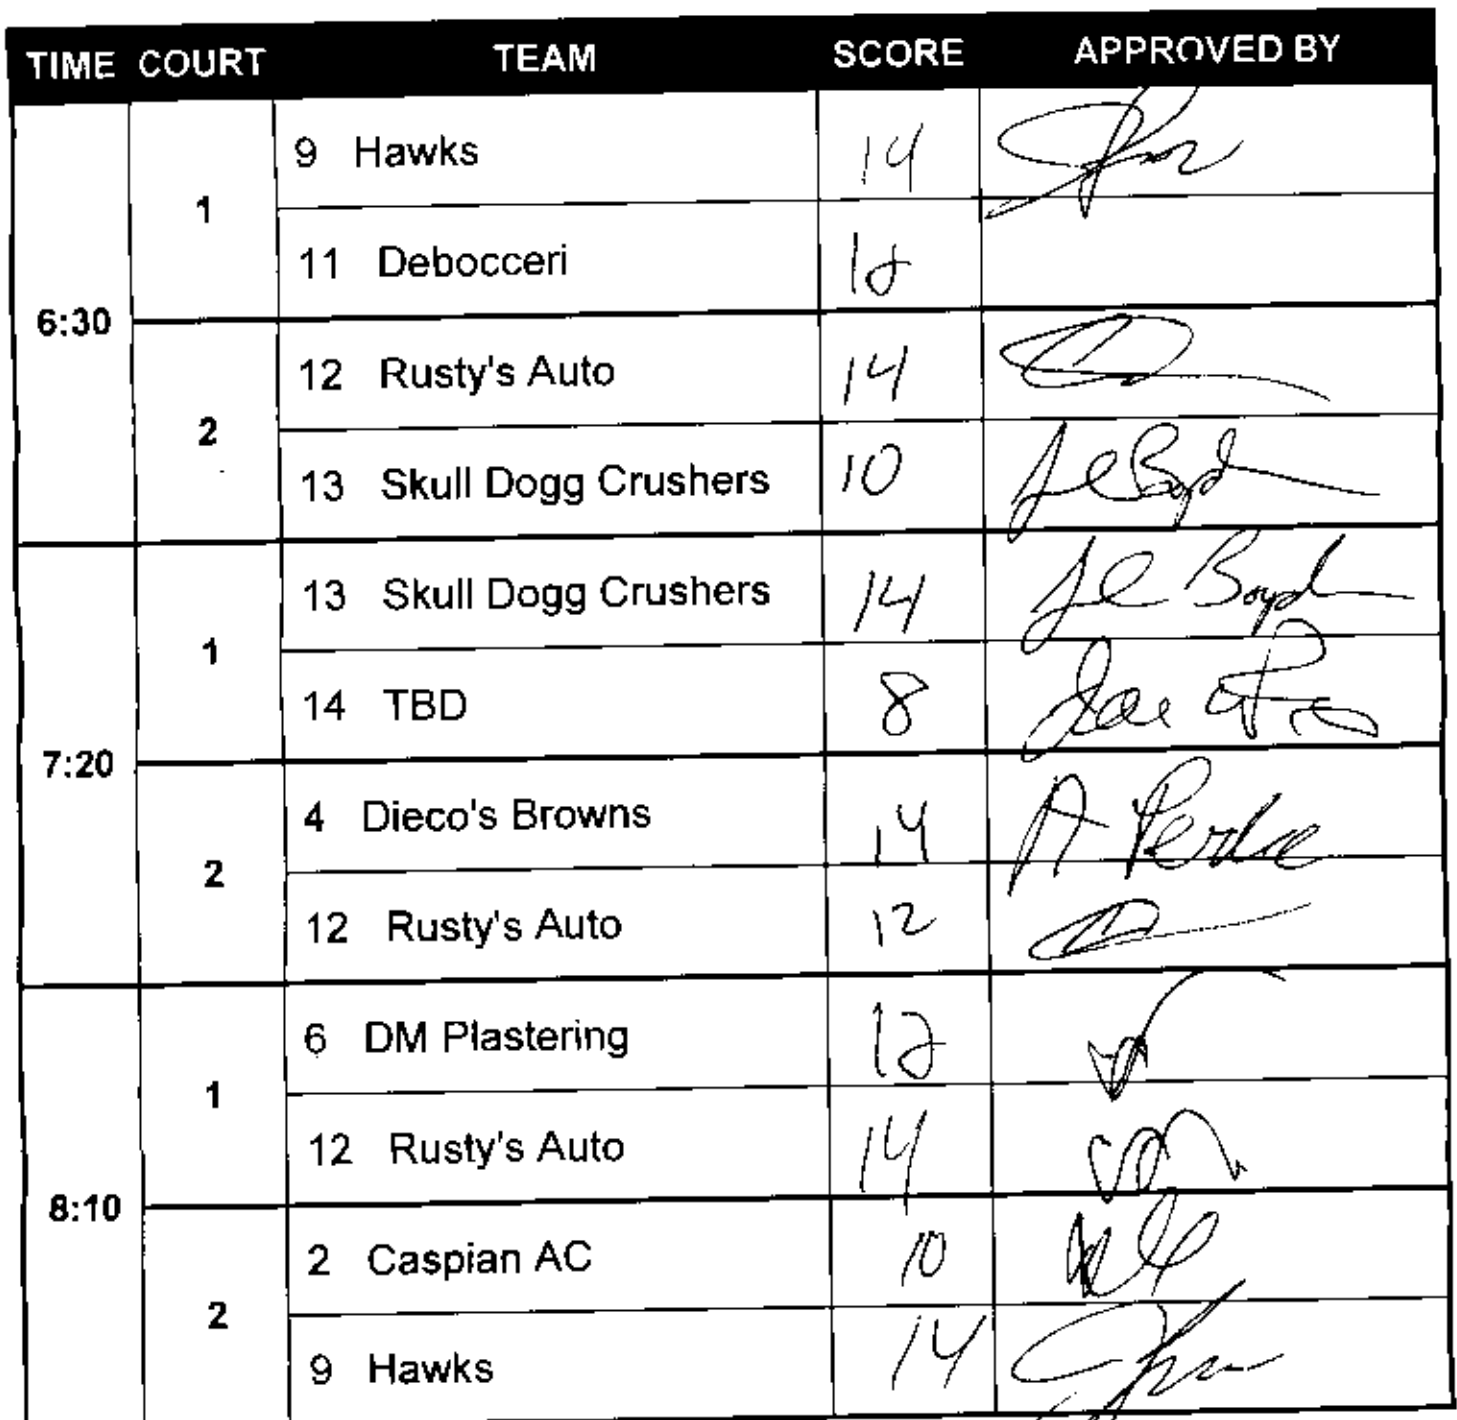 TIME COURT TEAM SCORE APPROVED BY
6:30
1
9 Hawks 14
11 Debocceri 12
2
12 Rusty's Auto 14
13 Skull Dogg Crushers 10 Boyd
7:20
1
13 Skull Dogg Crushers 14 Boyd
14 TBD 8
2
4 Dieco's Browns 14
12 Rusty's Auto 12
8:10
1
6 DM Plastering 12
12 Rusty's Auto 14
2
2 Caspian AC 10
9 Hawks 14